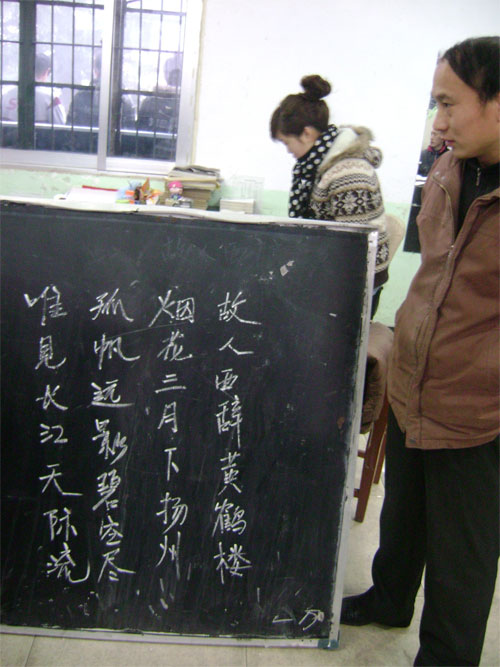 故人西辞黄鹤楼
烟花三月下扬州
孤帆远影碧空尽
唯見长江天际流